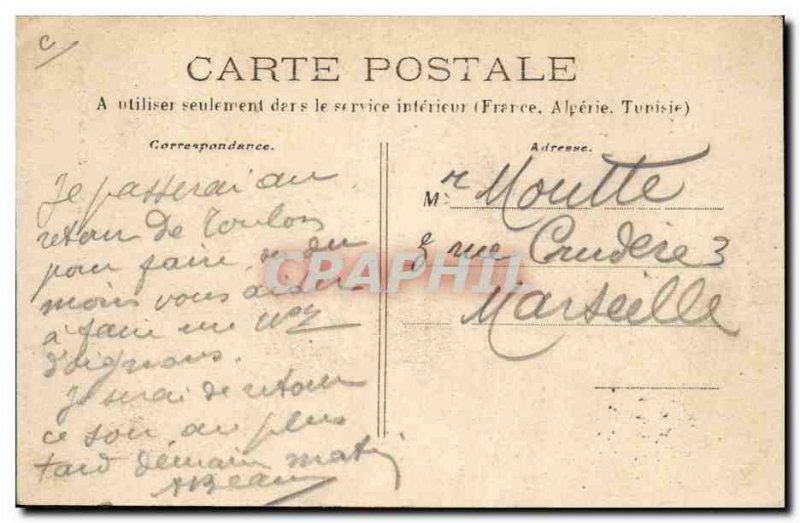 C
CARTE POSTALE
A utiliser seulement dans le service intérieur (France, Algérie, Tunisie)
Correspondance.
Je passerai au
retour de Toulon
pour faire, ou du
moins vous aider
à faire un
d'oignons.
Je serai de retour
ce soir au plus
tard demain matin
Adresse.
Mr Moutte
rue Crudère 3
Marseille
CPAPHIL